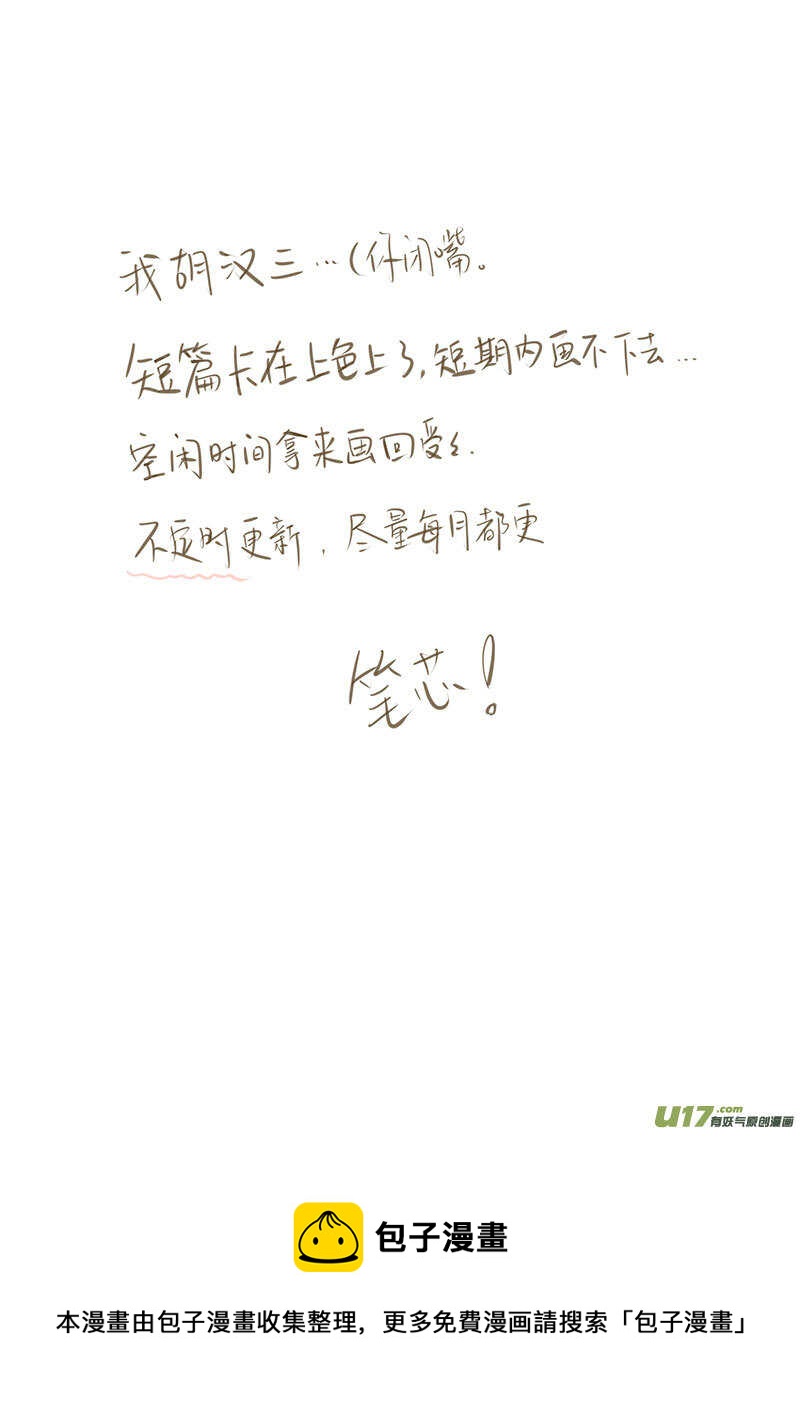 我胡汉三…(你闭嘴。
短篇卡在上色上了,短期内画不下去…
空闲时间拿来画回受
不定时更新,尽量每月都更
笔芯!
U17.com
有妖气原创漫画
包子漫畫
本漫畫由包子漫畫收集整理,更多免費漫画請搜索「包子漫畫」